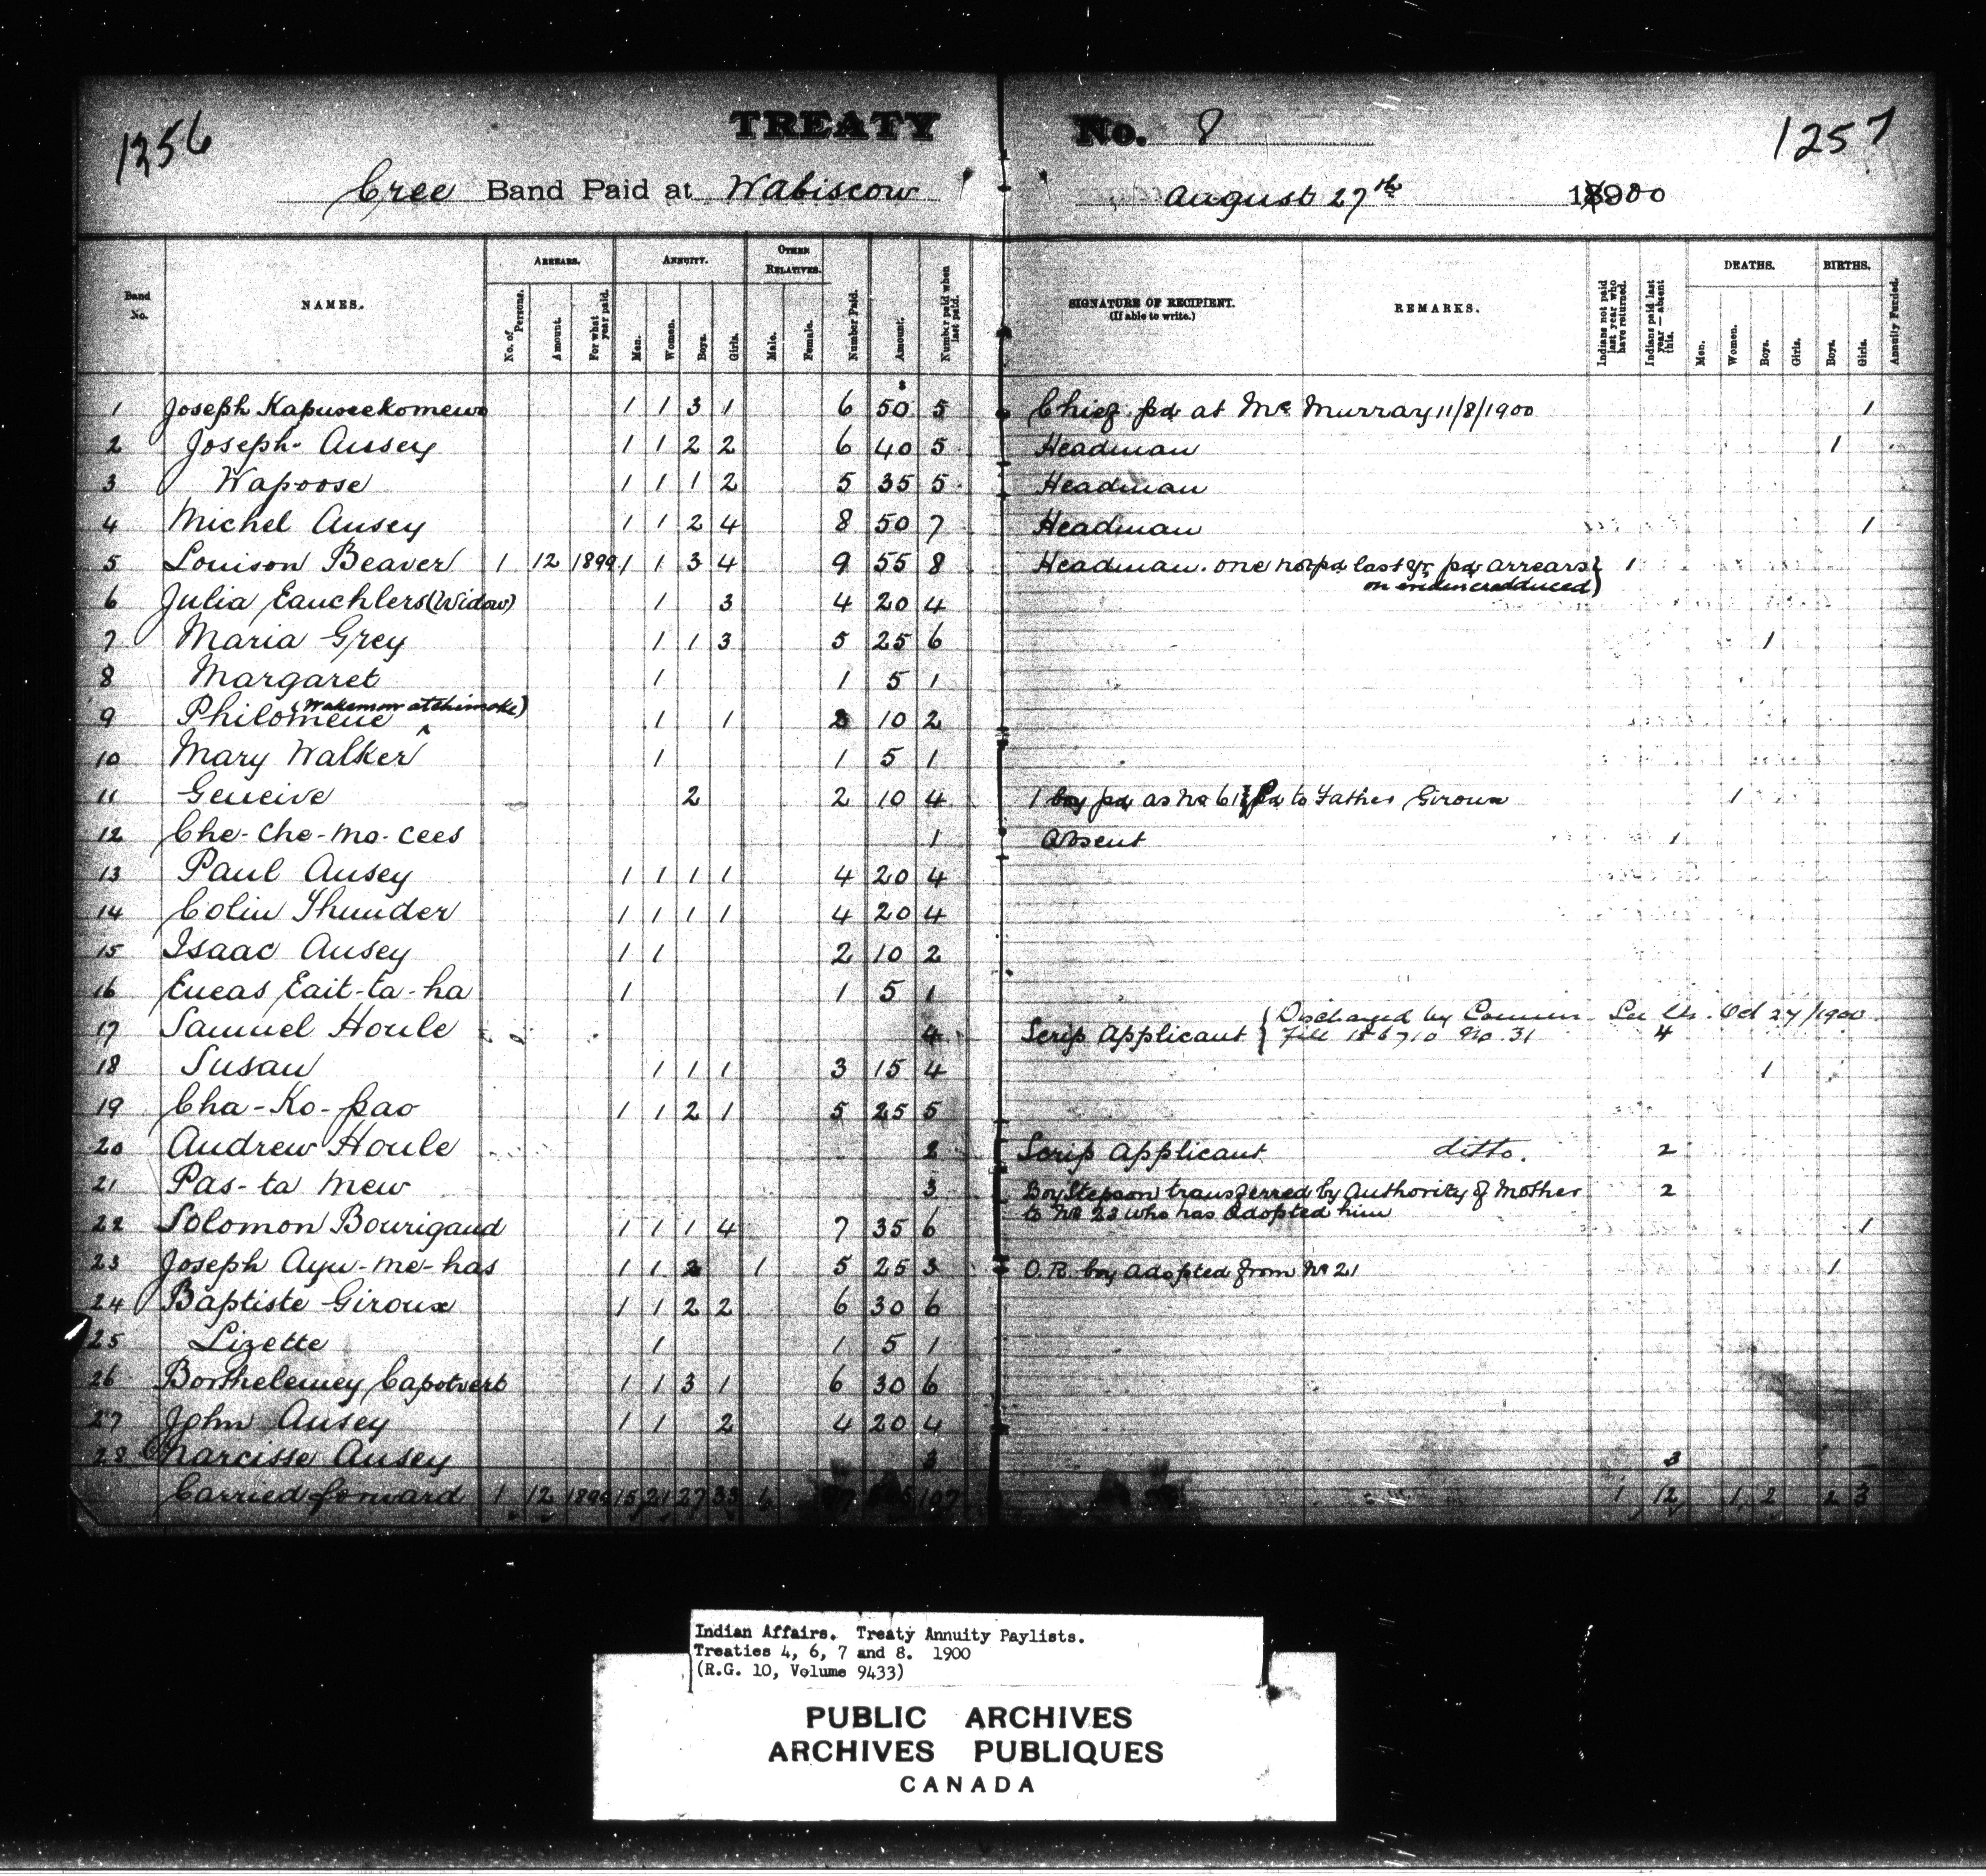 1256
TREATY No. 8
1257
Cree Band Paid at Wabiscow August 27th 18900
Band No. NAMES. ARREARS. No. of Persons. Amount. For what year paid. ANNUITY. Men. Women. Boys. Girls. OTHER RELATIVES. Male. Female. Number Paid. Amount. Number paid when last paid. SIGNATURE OF RECIPIENT. (If able to write.) REMARKS. Indians not paid last year who have returned. Indians paid last year — absent this. DEATHS. Men. Women. Boys. Girls. BIRTHS. Boys. Girls. Annuity Funded.
1 Joseph Kapuseekomew 1 1 3 1 6 $50 5 Chief pd at Mc Murray 11/8/1900 1
2 Joseph Ausey 1 1 2 2 6 40 5 Headman 1
3 Wapoose 1 1 1 2 5 35 5 Headman
4 Michel Ausey 1 1 2 4 8 50 7 Headman 1
5 Louison Beaver 1 12 1899 1 1 3 4 9 55 8 Headman. one not pd last yr, pd arrears 1
on evidence adduced)
6 Julia Eauchlers (Widow) 1 3 4 20 4
7 Maria Grey 1 1 3 5 25 6 1
8 Margaret 1 1 5 1
(Wakemow atchimoke)
9 Philomene 1 1 2 10 2
10 Mary Walker 1 1 5 1
11 Geneive 2 2 10 4 1 boy pd as No 61 Pd to Father Giroux 1
12 Che-Che-mo-cees 1 Absent 1
13 Paul Ausey 1 1 1 1 4 20 4
14 Colin Thunder 1 1 1 1 4 20 4
15 Isaac Ausey 1 1 2 10 2
16 Eucas Eait-ta-ha 1 1 5 1
Discharged by Commr Oct 27/1900
17 Samuel Houle 4 Scrip Applicant File 186710 No. 31 4
18 Susan 1 1 1 3 15 4 1
19 Cha-Ko-pao 1 1 2 1 5 25 5
20 Andrew Houle 2 Scrip Applicant ditto. 2
21 Pas-ta mew 3 Boy Stepson transferred by Authority of Mother 2
to No 23 who has Adopted him
22 Solomon Bourigaud 1 1 1 4 7 35 6 1
23 Joseph Ayu-me-has 1 1 2 1 5 25 3 O.R. boy adopted from No 21 1
24 Baptiste Giroux 1 1 2 2 6 30 6
25 Lizette 1 1 5 1
26 Borthelemey Capotvert 1 1 3 1 6 30 6
27 John Ausey 1 1 2 4 20 4
28 Narcisse Ausey 3 3
Carried forward 1 12 1899 15 21 27 33 107 1 12 1 2 2 3
Indian Affairs. Treaty Annuity Paylists.
Treaties 4, 6, 7 and 8. 1900
(R.G. 10, Volume 9433)
PUBLIC ARCHIVES
ARCHIVES PUBLIQUES
CANADA